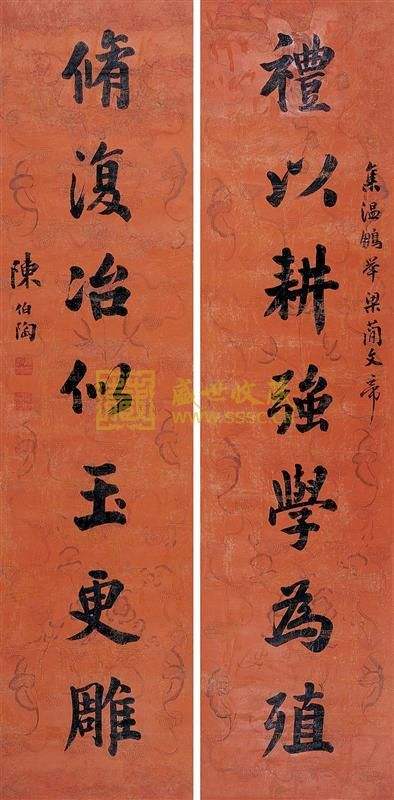 集温鵬舉梁簡文帝
禮以耕強學為殖
脩復冶似玉更雕
陳伯陶
盛世收藏
www.sssc.cn